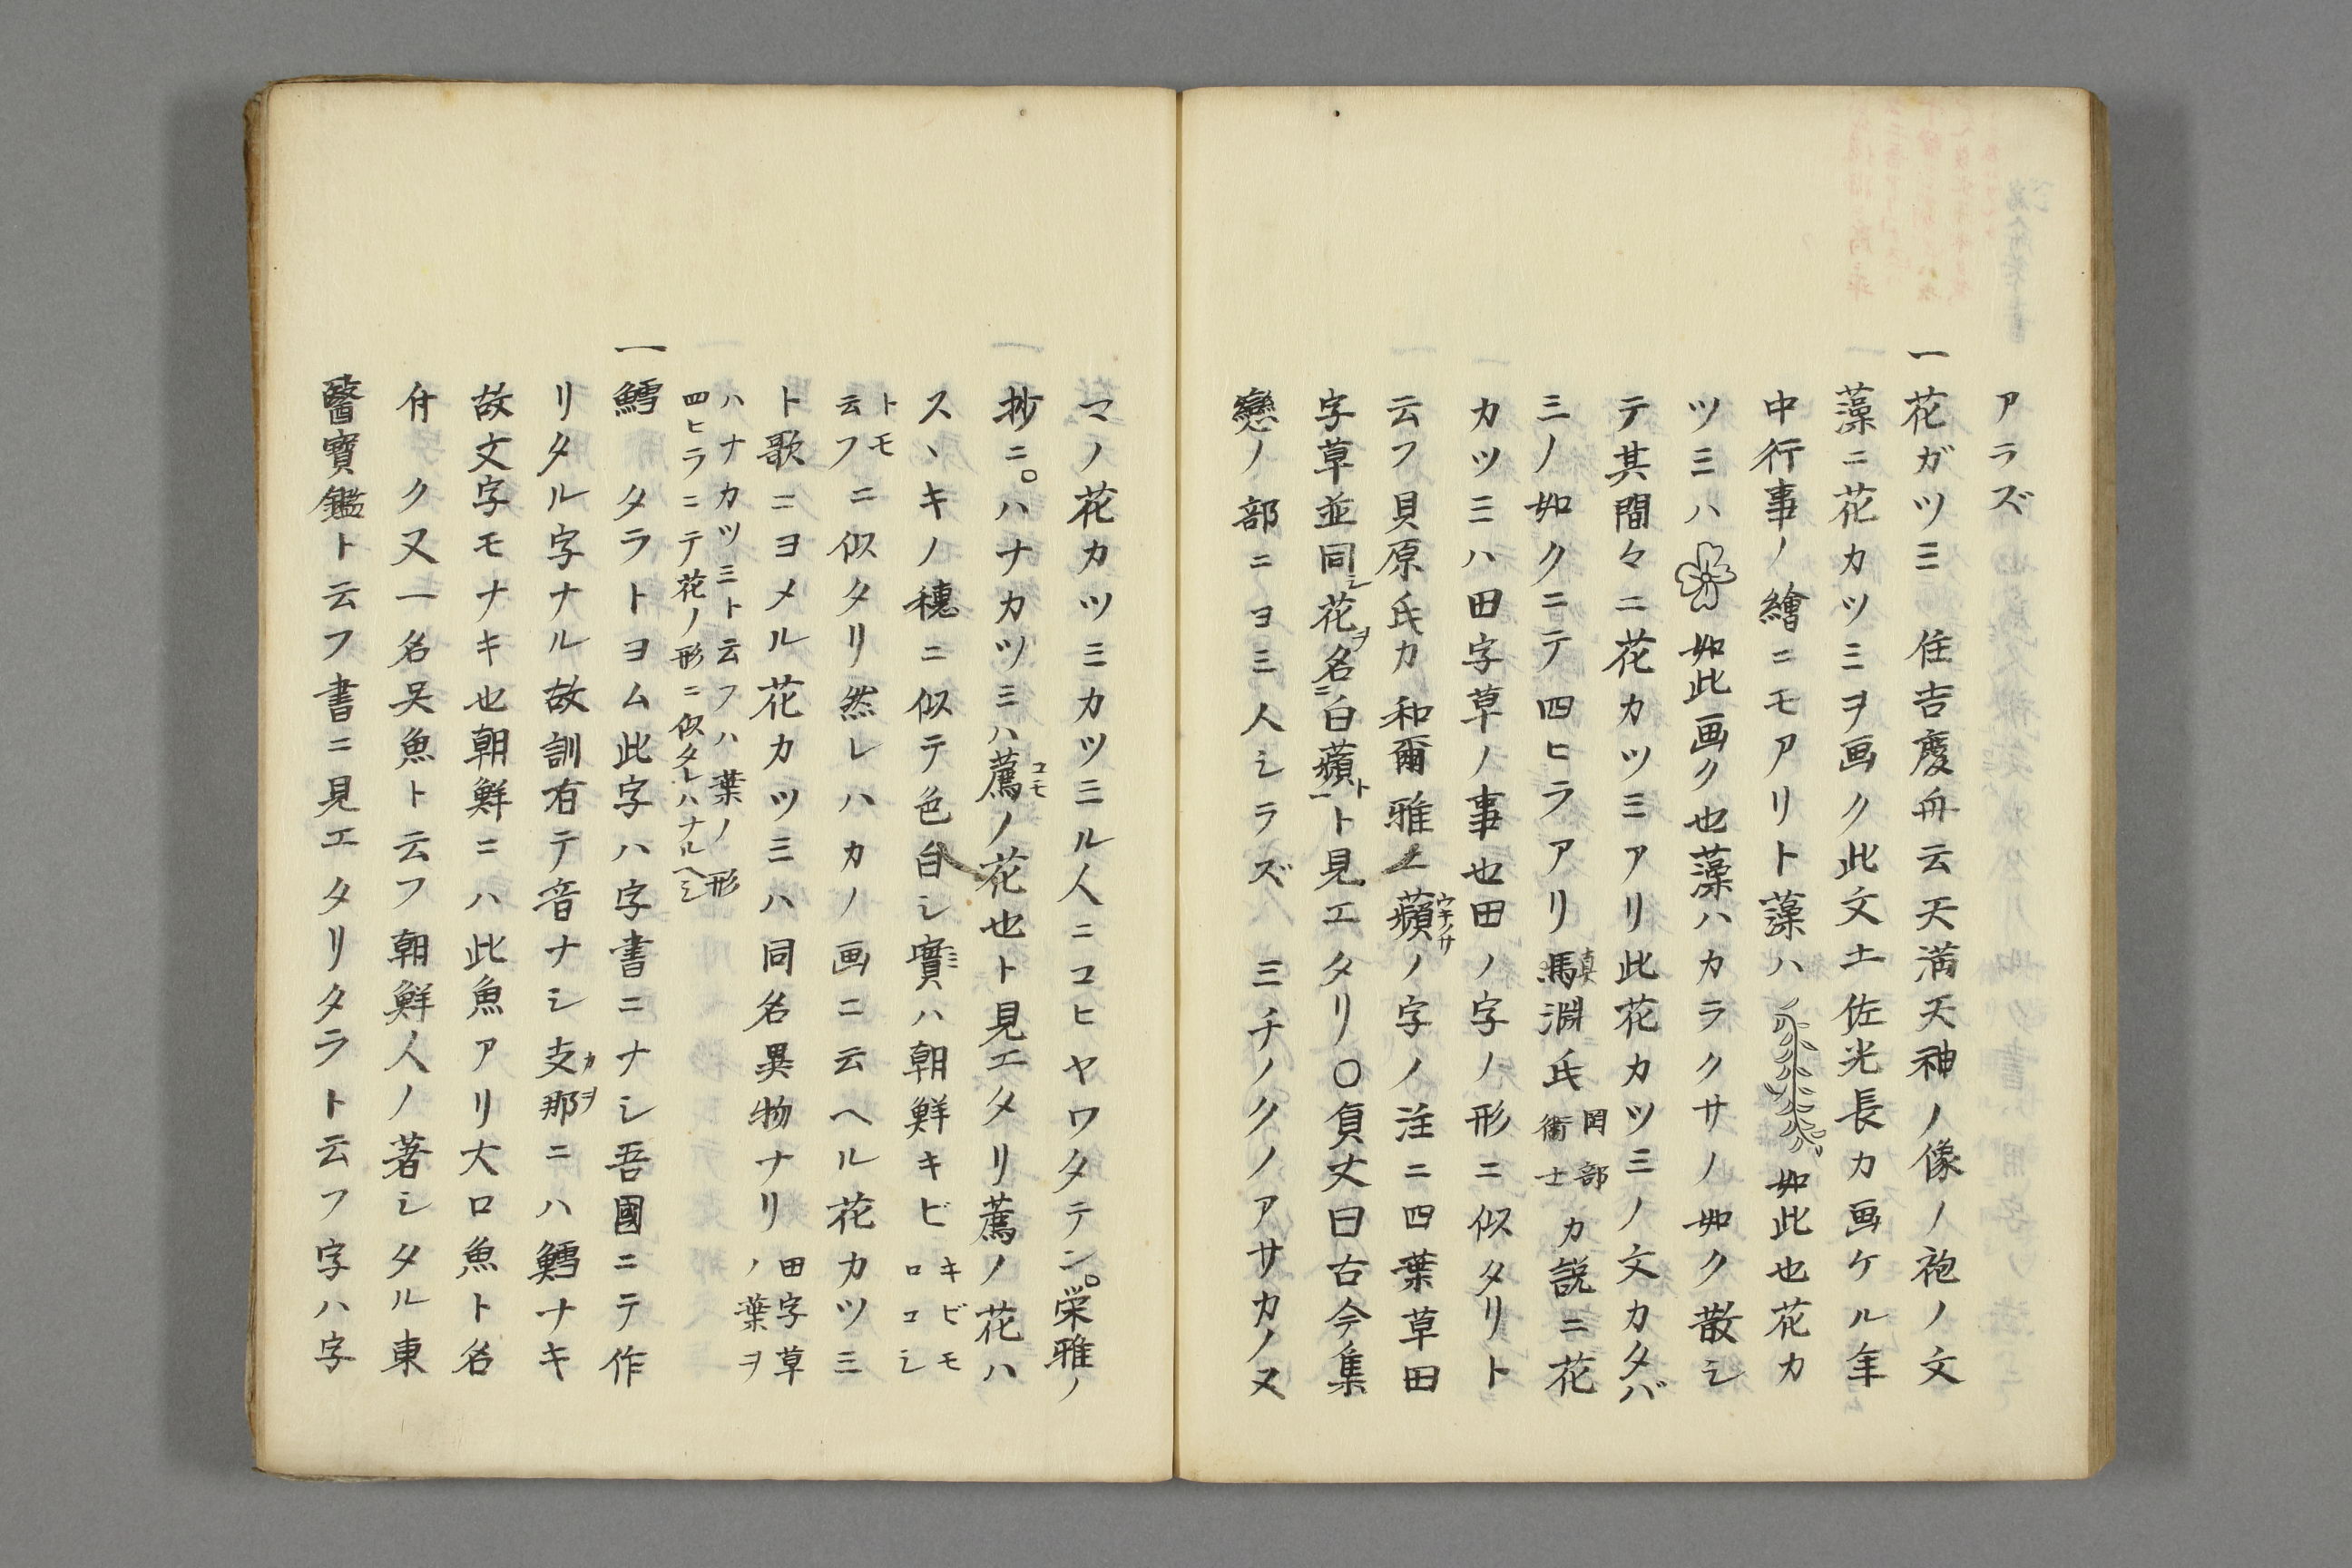 アラズ
一花ガツミ　住吉慶舟云天満天神ノ像ノ袍ノ文
藻ニ花カツミヲ画ク此文土佐光長カ画ケル年
中行事ノ繪ニモアリト藻ハ如此也花カ
ツミハ如此画ク也藻ハカラクサノ如ク散シ
テ其間々ニ花カツミアリ此花カツミノ文カタバ
ミノ如クニテ四ヒラアリ馬淵氏岡部衛士カ説ニ花
真
カツミハ田字草ノ事也田ノ字ノ形ニ似タリト
云フ貝原氏カ和爾雅ニ蘋ノ字ノ注ニ四葉草田
ウキクサ
字草並同シ花ヲ名ニ白蘋ト一ト見エタリ〇負丈曰古今集
戀ノ部ニヨミ人シラズ　ミチノクノアサカノヌ
マノ花カツミカツミル人ニコヒヤワタテン。栄雅ノ
抄ニ。ハナカツミハ薦ノ花也ト見エタリ薦ノ花ハ
コモ
スヽキノ穂ニ似テ色白シ實ハ朝鮮キビキビモロコシ
ミ
トモ云フニ似タリ然レハカノ画ニ云ヘル花カツミ
ト歌ニヨメル花カツミハ同名異物ナリ田字草ノ葉ヲ
ハナカツミト云フハ葉ノ形
四ヒラニテ花ノ形ニ似タレハナルヘシ
一鱈　タラトヨム此字ハ字書ニナシ吾國ニテ作
リタル字ナル故訓有テ音ナシ支那ニハ鱈ナキ
カヲ
故文字モナキ也朝鮮ニハ此魚アリ大口魚ト名
付ク又一名呉魚ト云フ朝鮮人ノ著シタル東
醫寳鑑ト云フ書ニ見エタリタラト云フ字ハ字